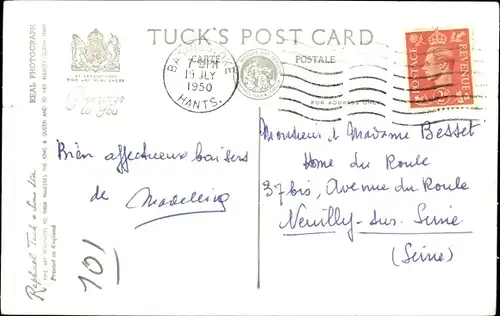 TUCK'S POST CARD
CARTE POSTALE
REAL PHOTOGRAPH
BASINGSTOKE
19 JLY
1950
HANTS.
POSTAGE
REVENUE
FOR ADDRESS ONLY
Greetings
to You
Bien affectueux baisers
de Madeleine
101
Monsieur & Madame Besset
Home du Roule
37 bis, Avenue du Roule
Neuilly-sur-Seine
(Seine)
Raphael Tuck & Sons Ltd
FINE ART PUBLISHERS TO THEIR MAJESTIES THE KING & QUEEN AND TO HER MAJESTY QUEEN MARY
Printed in England